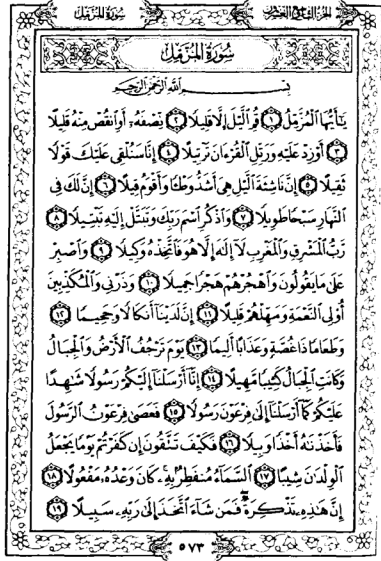 سُورَةُ المُزَّمِّل الجُزءُ التَّاسِعُ وَالعِشْرُونَ
سُورَةُ المُزَّمِّل
بِسْمِ اللَّهِ الرَّحْمَٰنِ الرَّحِيمِ
يَٰٓأَيُّهَا ٱلْمُزَّمِّلُ ١ قُمِ ٱلَّيْلَ إِلَّا قَلِيلًا ٢ نِّصْفَهُۥٓ أَوِ ٱنقُصْ مِنْهُ قَلِيلًا
٣ أَوْ زِدْ عَلَيْهِ وَرَتِّلِ ٱلْقُرْءَانَ تَرْتِيلًا ٤ إِنَّا سَنُلْقِى عَلَيْكَ قَوْلًا
ثَقِيلًا ٥ إِنَّ نَاشِئَةَ ٱلَّيْلِ هِىَ أَشَدُّ وَطْـًٔا وَأَقْوَمُ قِيلًا ٦ إِنَّ لَكَ فِى
ٱلنَّهَارِ سَبْحًا طَوِيلًا ٧ وَٱذْكُرِ ٱسْمَ رَبِّكَ وَتَبَتَّلْ إِلَيْهِ تَبْتِيلًا ٨
رَّبُّ ٱلْمَشْرِقِ وَٱلْمَغْرِبِ لَآ إِلَٰهَ إِلَّا هُوَ فَٱتَّخِذْهُ وَكِيلًا ٩ وَٱصْبِرْ
عَلَىٰ مَا يَقُولُونَ وَٱهْجُرْهُمْ هَجْرًا جَمِيلًا ١٠ وَذَرْنِى وَٱلْمُكَذِّبِينَ
أُو۟لِى ٱلنَّعْمَةِ وَمَهِّلْهُمْ قَلِيلًا ١١ إِنَّ لَدَيْنَآ أَنكَالًا وَجَحِيمًا ١٢
وَطَعَامًا ذَا غُصَّةٍ وَعَذَابًا أَلِيمًا ١٣ يَوْمَ تَرْجُفُ ٱلْأَرْضُ وَٱلْجِبَالُ
وَكَانَتِ ٱلْجِبَالُ كَثِيبًا مَّهِيلًا ١٤ إِنَّآ أَرْسَلْنَآ إِلَيْكُمْ رَسُولًا شَٰهِدًا
عَلَيْكُمْ كَمَآ أَرْسَلْنَآ إِلَىٰ فِرْعَوْنَ رَسُولًا ١٥ فَعَصَىٰ فِرْعَوْنُ ٱلرَّسُولَ
فَأَخَذْنَٰهُ أَخْذًا وَبِيلًا ١٦ فَكَيْفَ تَتَّقُونَ إِن كَفَرْتُمْ يَوْمًا يَجْعَلُ
ٱلْوِلْدَٰنَ شِيبًا ١٧ ٱلسَّمَآءُ مُنفَطِرٌۢ بِهِۦ كَانَ وَعْدُهُۥ مَفْعُولًا ١٨
إِنَّ هَٰذِهِۦ تَذْكِرَةٌ فَمَن شَآءَ ٱتَّخَذَ إِلَىٰ رَبِّهِۦ سَبِيلًا ١٩
٥٧٣